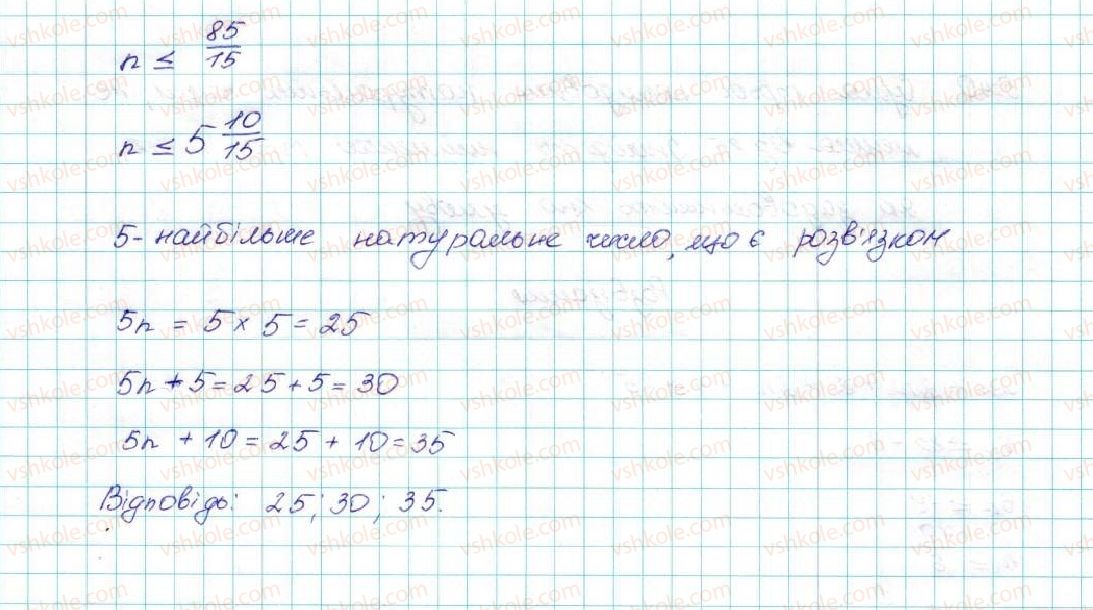 n ≤ 85/15
n ≤ 5 10/15
5 - найбільше натуральне число, що є розв'язком
5n = 5 × 5 = 25
5n + 5 = 25 + 5 = 30
5n + 10 = 25 + 10 = 35
Відповідь: 25; 30; 35.